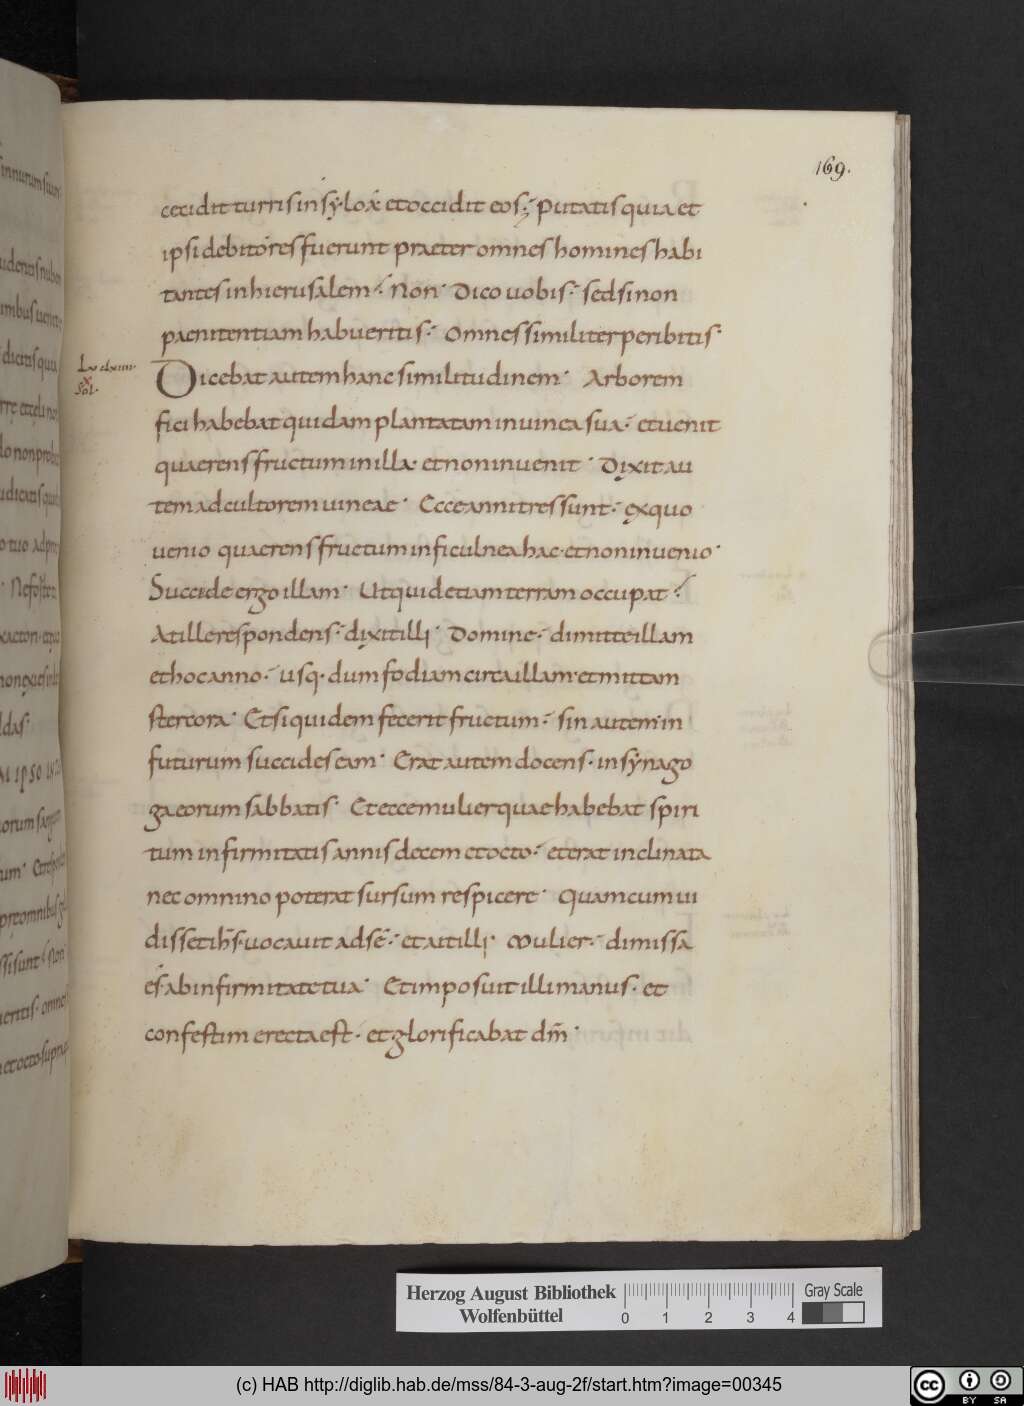 169.
cecidit turris in sý·loǽ et occidit eos; putatis quia et
ipsi debitores fuerunt praeter omnes homines habi
tantes in hierusalem· Non· Dico uobis· sed si non
paenitentiam habueritis· Omnes similiter peribitis·
Lu clxiiii·
x
sol·
Dicebat autem hanc similitudinem· Arborem
fici habebat quidam plantatam in uinea sua· et uenit
quaerens fructum in illa· et non inuenit· Dixit au
tem ad cultorem uineae· Ecce anni tres sunt· ex quo
uenio quaerens fructum in ficulnea hac· et non inuenio·
Succide ergo illam· Ut quid etiam terram occupat·
At ille respondens· dixit illi· Domine· dimitte illam
et hoc anno· usq· dum fodiam circa illam· et mittam
stercora· Et si quidem fecerit fructum· sin autem in
futurum succides eam· Erat autem docens· in sýnago
ga eorum sabbatis· Et ecce mulier quae habebat spiri
tum infirmitatis annis decem et octo· et erat inclinata
nec omnino poterat sursum respicere· Quam cum ui
disset ihs· uocauit ad se· et ait illi· Mulier· dimissa
es· ab infirmitate tua· Et imposuit illi manus· et
confestim erecta est· et glorificabat dm̄·
Herzog August Bibliothek
Wolfenbüttel
0 1 2 3 4
Gray Scale
(c) HAB http://diglib.hab.de/mss/84-3-aug-2f/start.htm?image=00345
cc BY SA